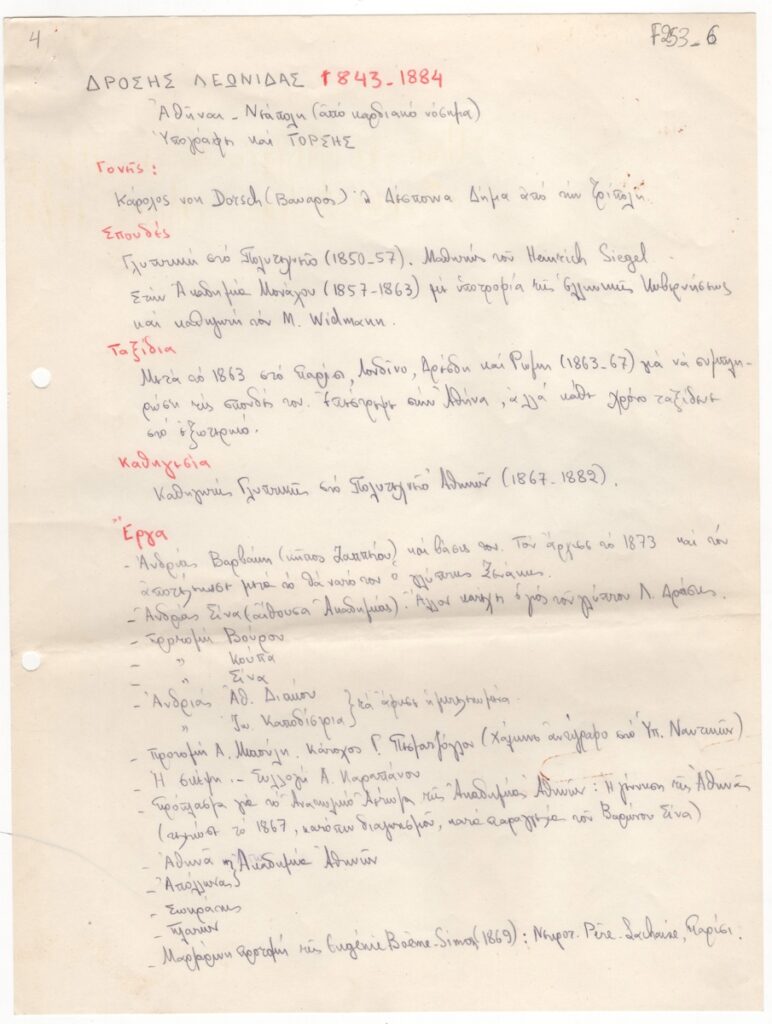 4
F253-6
ΔΡΟΣΗΣ ΛΕΩΝΙΔΑΣ 1843-1884
Ἀθῆναι - Νεάπολη (ἀπό καρδιακό νόσημα)
Ὑπογράφει καί ΤΟΡΣΗΣ
Γονεῖς:
Κάρολος νον Dorsch (Βαυαρός) & Δέσποινα Δήμα ἀπό τήν Τρίπολη
Σπουδές
Γλυπτική στό Πολυτεχνεῖο (1850-57). Μαθητής τοῦ Heinrich Siegel
Στήν Ἀκαδημία Μονάχου (1857-1863) μέ ὑποτροφία τῆς ἑλληνικῆς Κυβερνήσεως
καί καθηγητή τόν M. Widmann.
Ταξίδια
Μετά τό 1863 στό Παρίσι, Λονδῖνο, Δρέσδη καί Ρώμη (1863-67) γιά νά συμπλη-
ρώση τίς σπουδές του. Ἐπέστρεψε στήν Ἀθήνα, ἀλλά κάθε χρόνο ταξίδευε
στό ἐξωτερικό.
Καθηγεσία
Καθηγητής Γλυπτικῆς στό Πολυτεχνεῖο Ἀθηνῶν (1867-1882).
Ἔργα
- Ἀνδριάς Βαρβάκη (κῆπος Ζαππείου) καί βάσις του. Τόν ἄρχισε τό 1873 καί τόν
ἀποτελείωσε μετά τό θάνατό του ὁ γλύπτης
- Ἀνδριάς Σίνα (αἴθουσα Ἀκαδημίας). Ἄλλον κατέχει ὁ γιός τοῦ γλύπτου Λ. Δρόσης.
- Προτομή Βούρου
- " Κούπα
- " Σίνα
- Ἀνδριάς Ἀθ. Διάκου } τά ἄφησε ἡμιτελειωμένα
" Ἰω. Καποδίστρια }
- Προτομή Α. Μιαούλη. Κάτοχος Γ. Πεσμαζόγλου (Χάλκινο ἀντίγραφο στό Ὑπ. Ναυτικῶν)
- Ἡ σκέψη.- Συλλογή Α. Καραπάνου
- Πρόπλασμα γιά τό Ἀνατολικό Ἀέτωμα τῆς Ἀκαδημίας Ἀθηνῶν: Ἡ γέννηση τῆς Ἀθηνᾶς
(τελείωσε τό 1867, κατόπιν διαγωνισμοῦ, κατά παραγγελία τοῦ Βαρώνου Σίνα)
- Ἀθηνᾶ } Ἀκαδημία Ἀθηνῶν
- Ἀπόλλωνας }
- Σωκράτης
- Πλάτων
- Μαρμάρινη προτομή τῆς Eugénie Boème-Simon (1869): Νεκροτ. Père-Lachaise, Παρίσι.